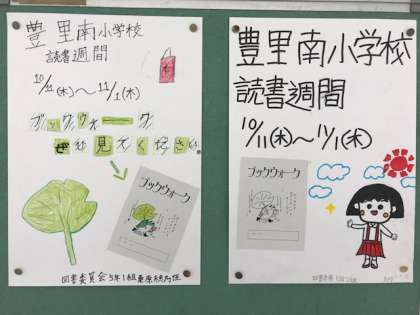 豊里南小学校
読書週間
10/11(木)～11/1(木)
ブックウォーク
ぜひ見てください。
ブックウォーク
図書委員会 5年1組
豊里南小学校
読書週間
10/11(木)～11/1(木)
ブックウォーク